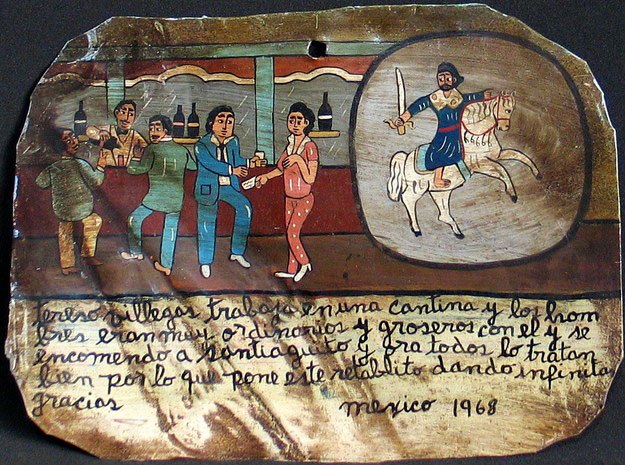 tereso villegas trabaja en una cantina y los hom
bres eran muy ordinarios y groseros con el y se
encomendo a santiaguito y ora todos lo tratan
bien por lo que pone este retablito dando infinitas
gracias mexico 1968